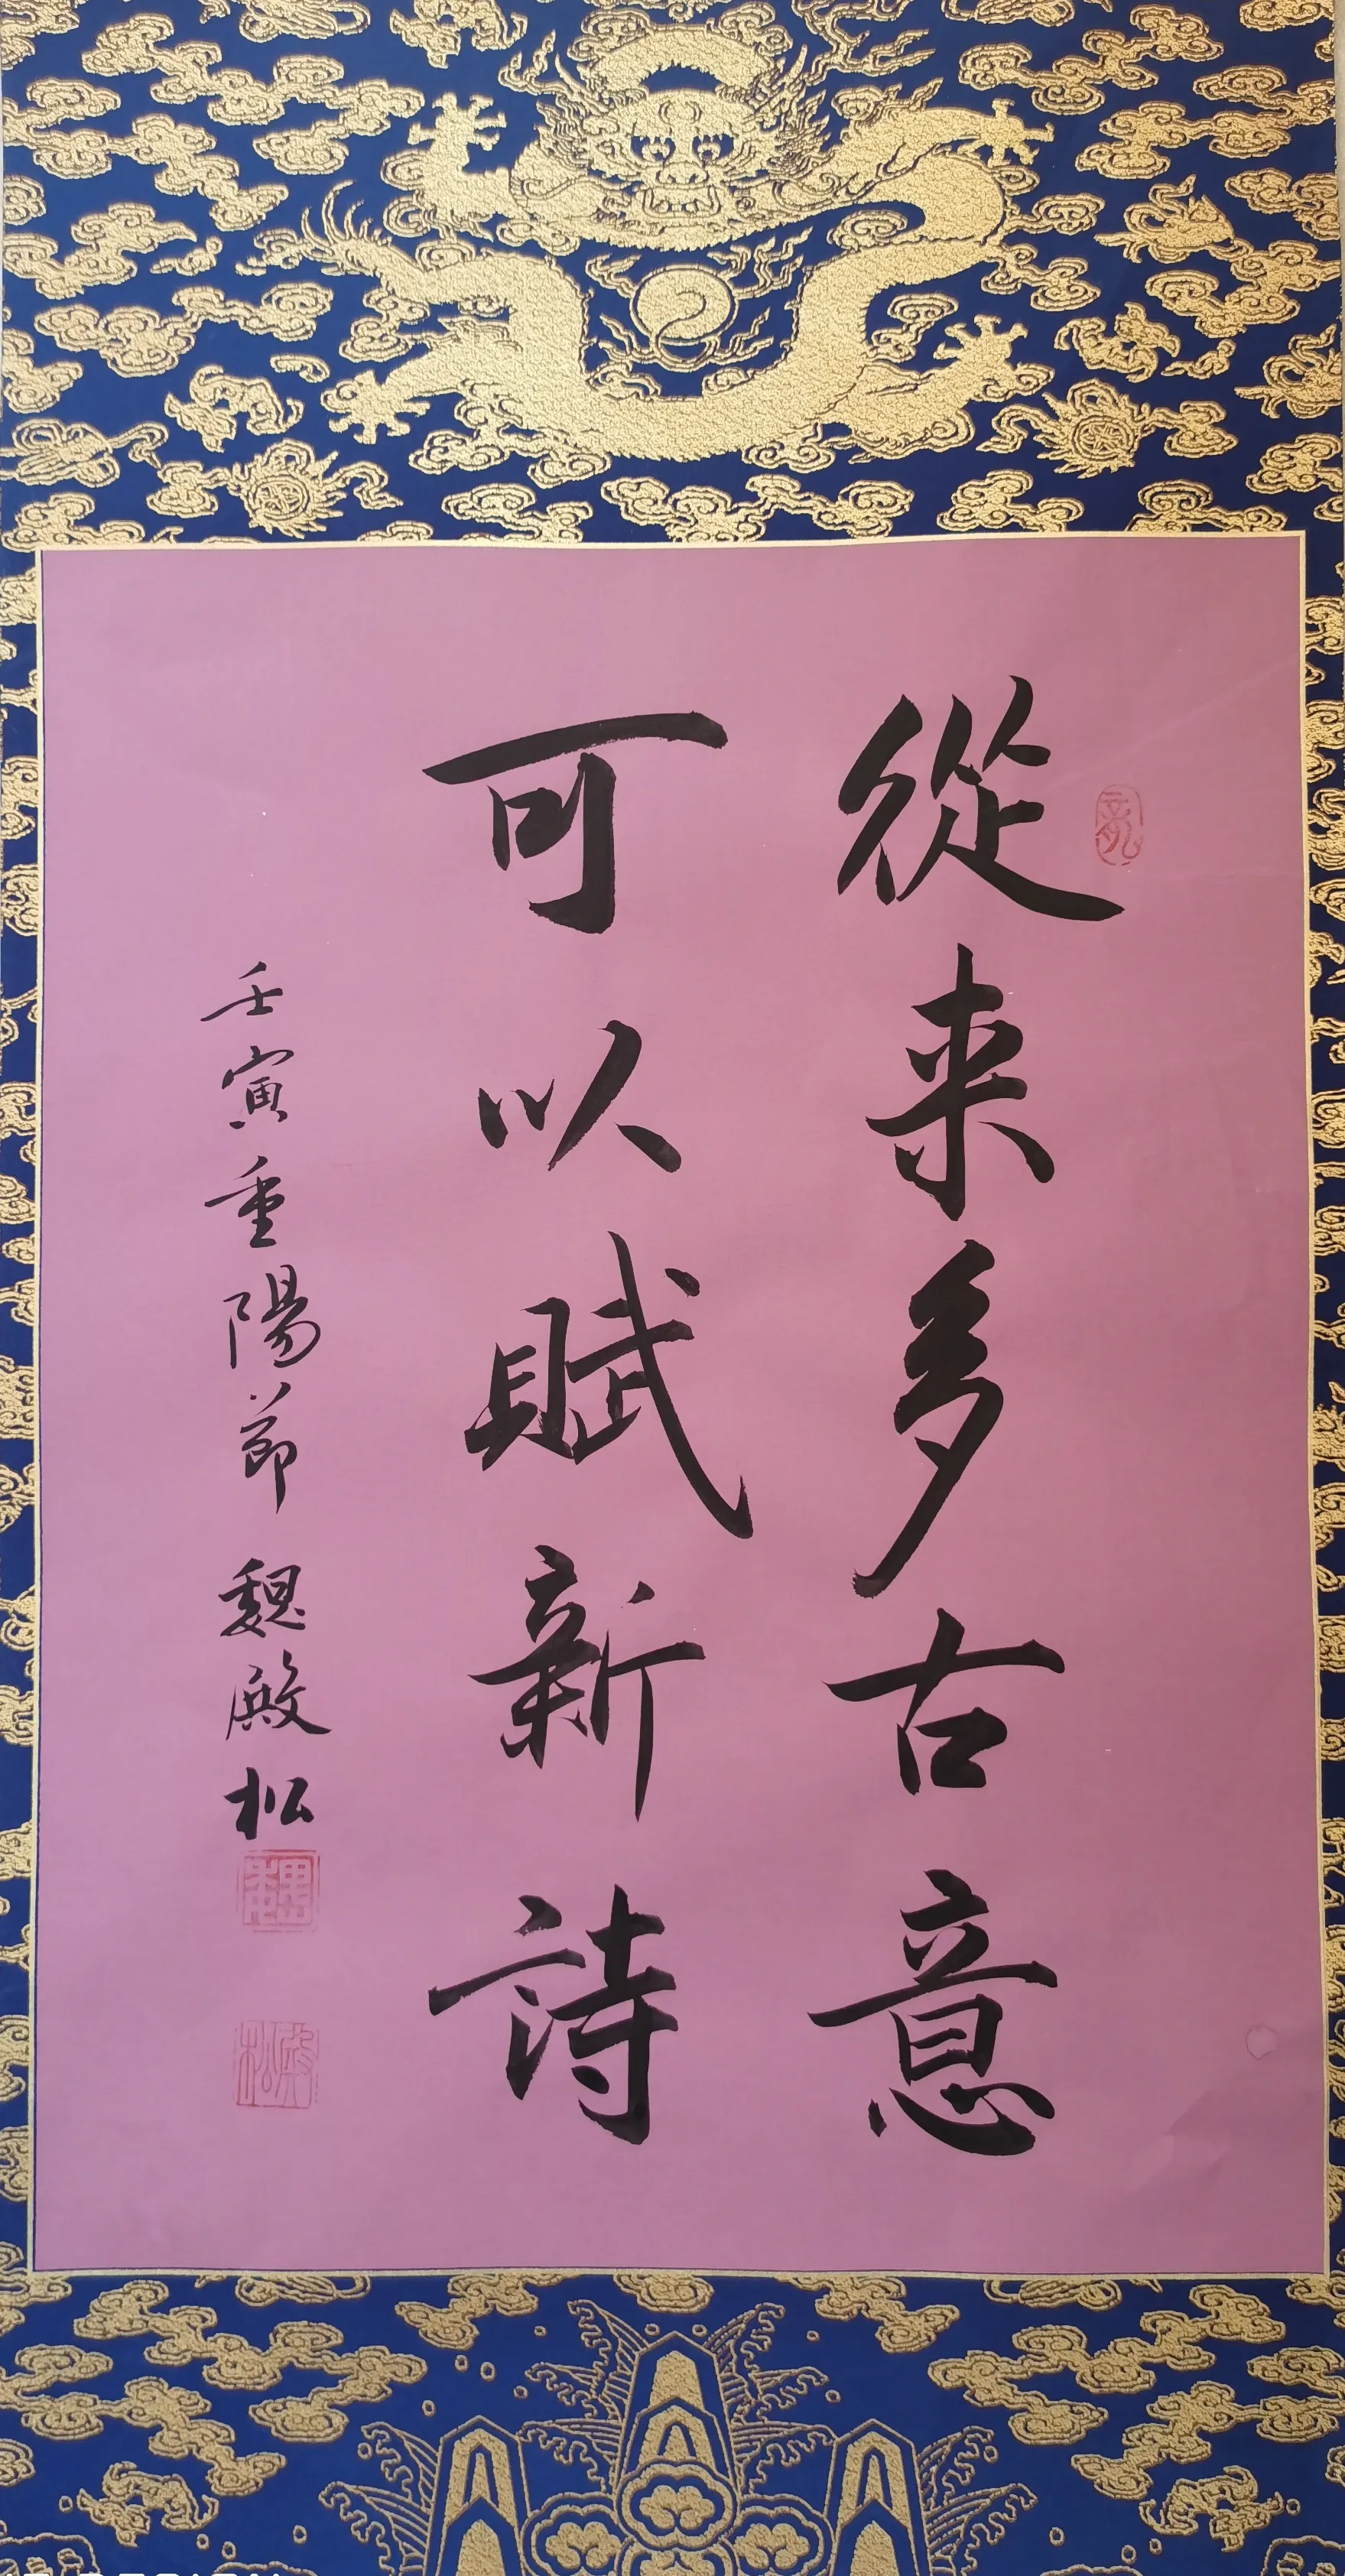 從来多古意
可以賦新詩
壬寅重陽節 魏殿松